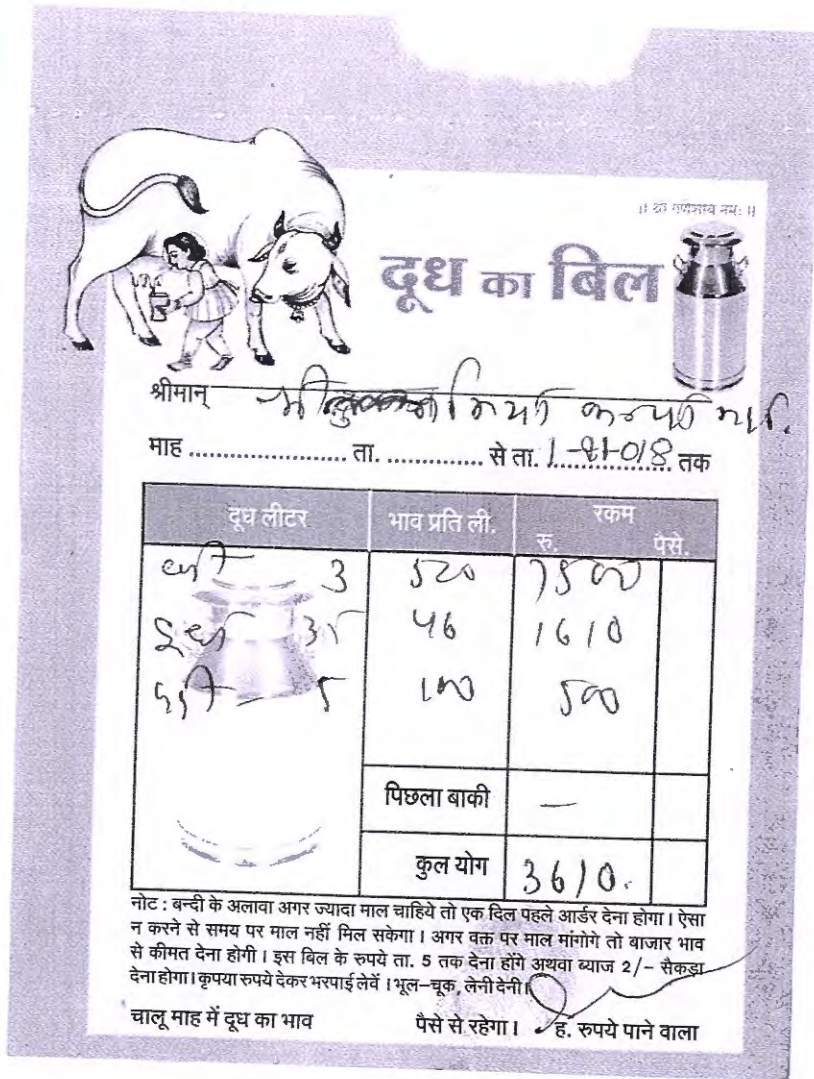 ।। श्री गणेशाय नमः ।।
दूध का बिल
श्रीमान्
माह .................... ता. .............. से ता. 1-21-018 तक
दूध लीटर भाव प्रति ली. रकम
रु. पैसे.
घी 3 520 1500
दूध 35 46 1610
दही - 5 100 500
पिछला बाकी —
कुल योग 3610.
नोट : बन्दी के अलावा अगर ज्यादा माल चाहिये तो एक दिल पहले आर्डर देना होगा। ऐसा
न करने से समय पर माल नहीं मिल सकेगा। अगर वक्त पर माल मांगोगे तो बाजार भाव
से कीमत देना होगी। इस बिल के रुपये ता. 5 तक देना होंगे अथवा ब्याज 2/- सैकड़ा
देना होगा। कृपया रुपये देकर भरपाई लेवें। भूल-चूक, लेनी देनी।
चालू माह में दूध का भाव पैसे से रहेगा। ह. रुपये पाने वाला